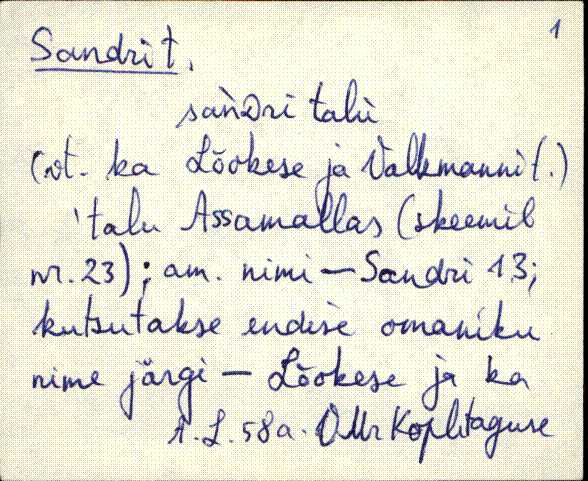 1
Sandri t.
sàǹDri talù
(vt. ka Lõokese ja Valkmanni t.)
'talu Assamallas (skeemil
nr. 23); am. nimi — Sandri 13;
kutsutakse endise omaniku
nime järgi — Lõokese ja ka
A.L. 58a. VMr Koplitaguse